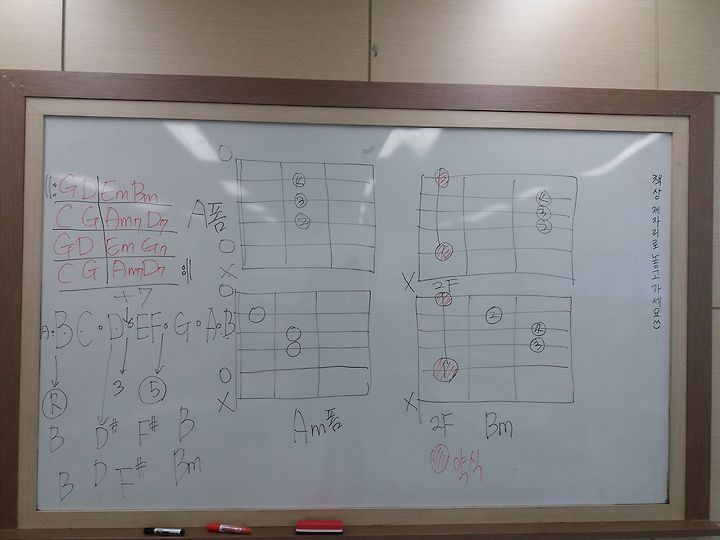 G D Em Bm
C G Am7 D7
G D Em G7
C G Am7 D7
+7
A · B C · D · E F · G · A · B
R 3 5
B D# F# B
B D F# Bm
A폼
O
4
3
2
O
X
O
O
X
Am폼
4
3
2
X 2F
2
4
3
X
2F Bm
약식
책상 제자리로 놓고 가세요